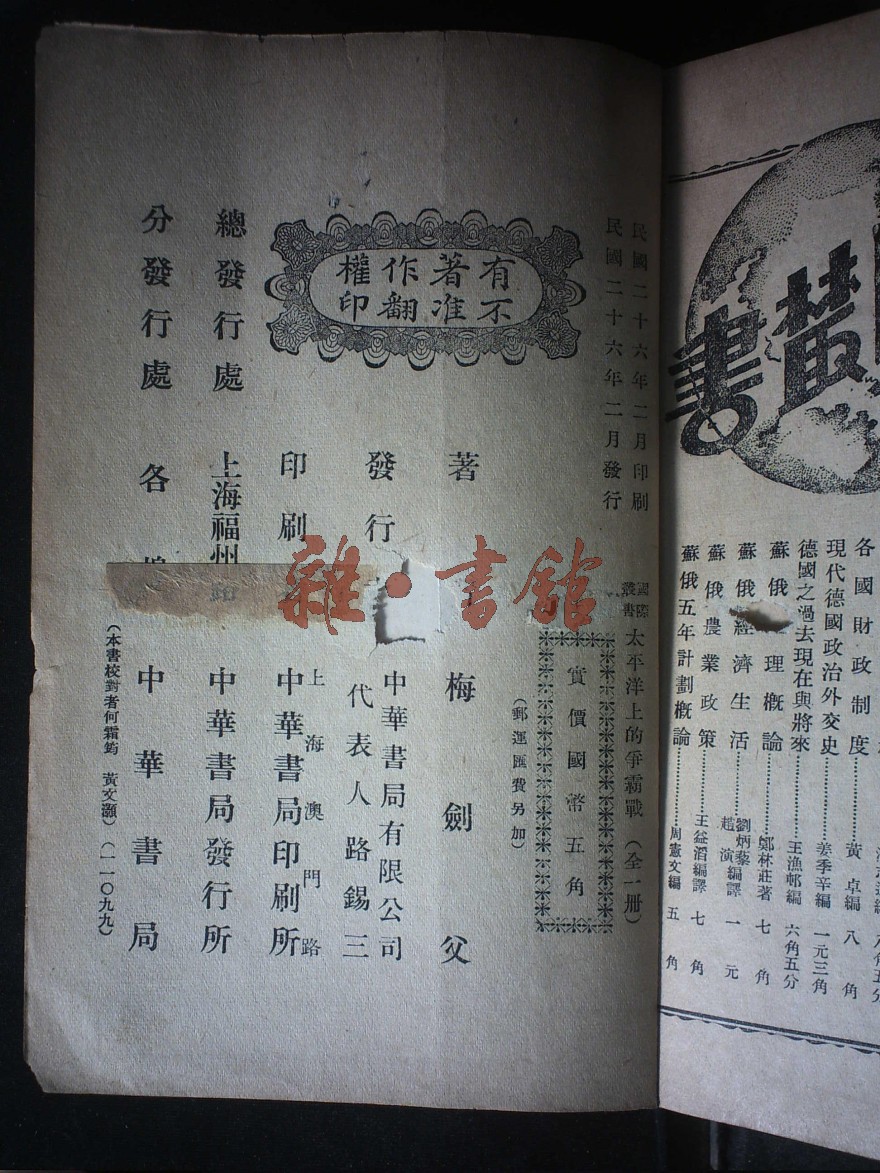 叢書
各國財政制度 黃卓編 八角
現代德國政治外交史 姜季辛編 一元三角
德國之過去現在與將來 王漁邨編 六角五分
蘇俄 理概論 鄭林莊著 七角
蘇俄經濟生活 劉炳藜 趙演編譯 一元
蘇俄農業政策 王益滔編譯 七角
蘇俄五年計劃概論 周憲文編 五角
民國二十六年二月印刷
民國二十六年二月發行
國際叢書 太平洋上的爭霸戰(全一册)
實價國幣五角
(郵運匯費另加)
有著作權
不准翻印
著 梅劍父
發行 中華書局有限公司
代表人路錫三
印刷 上海澳門路
中華書局印刷所
總發行處 上海福州路 中華書局發行所
分發行處 各 中華書局
(本書校對者何霜筠 黃文灝)(一一〇九九)
雜·書館